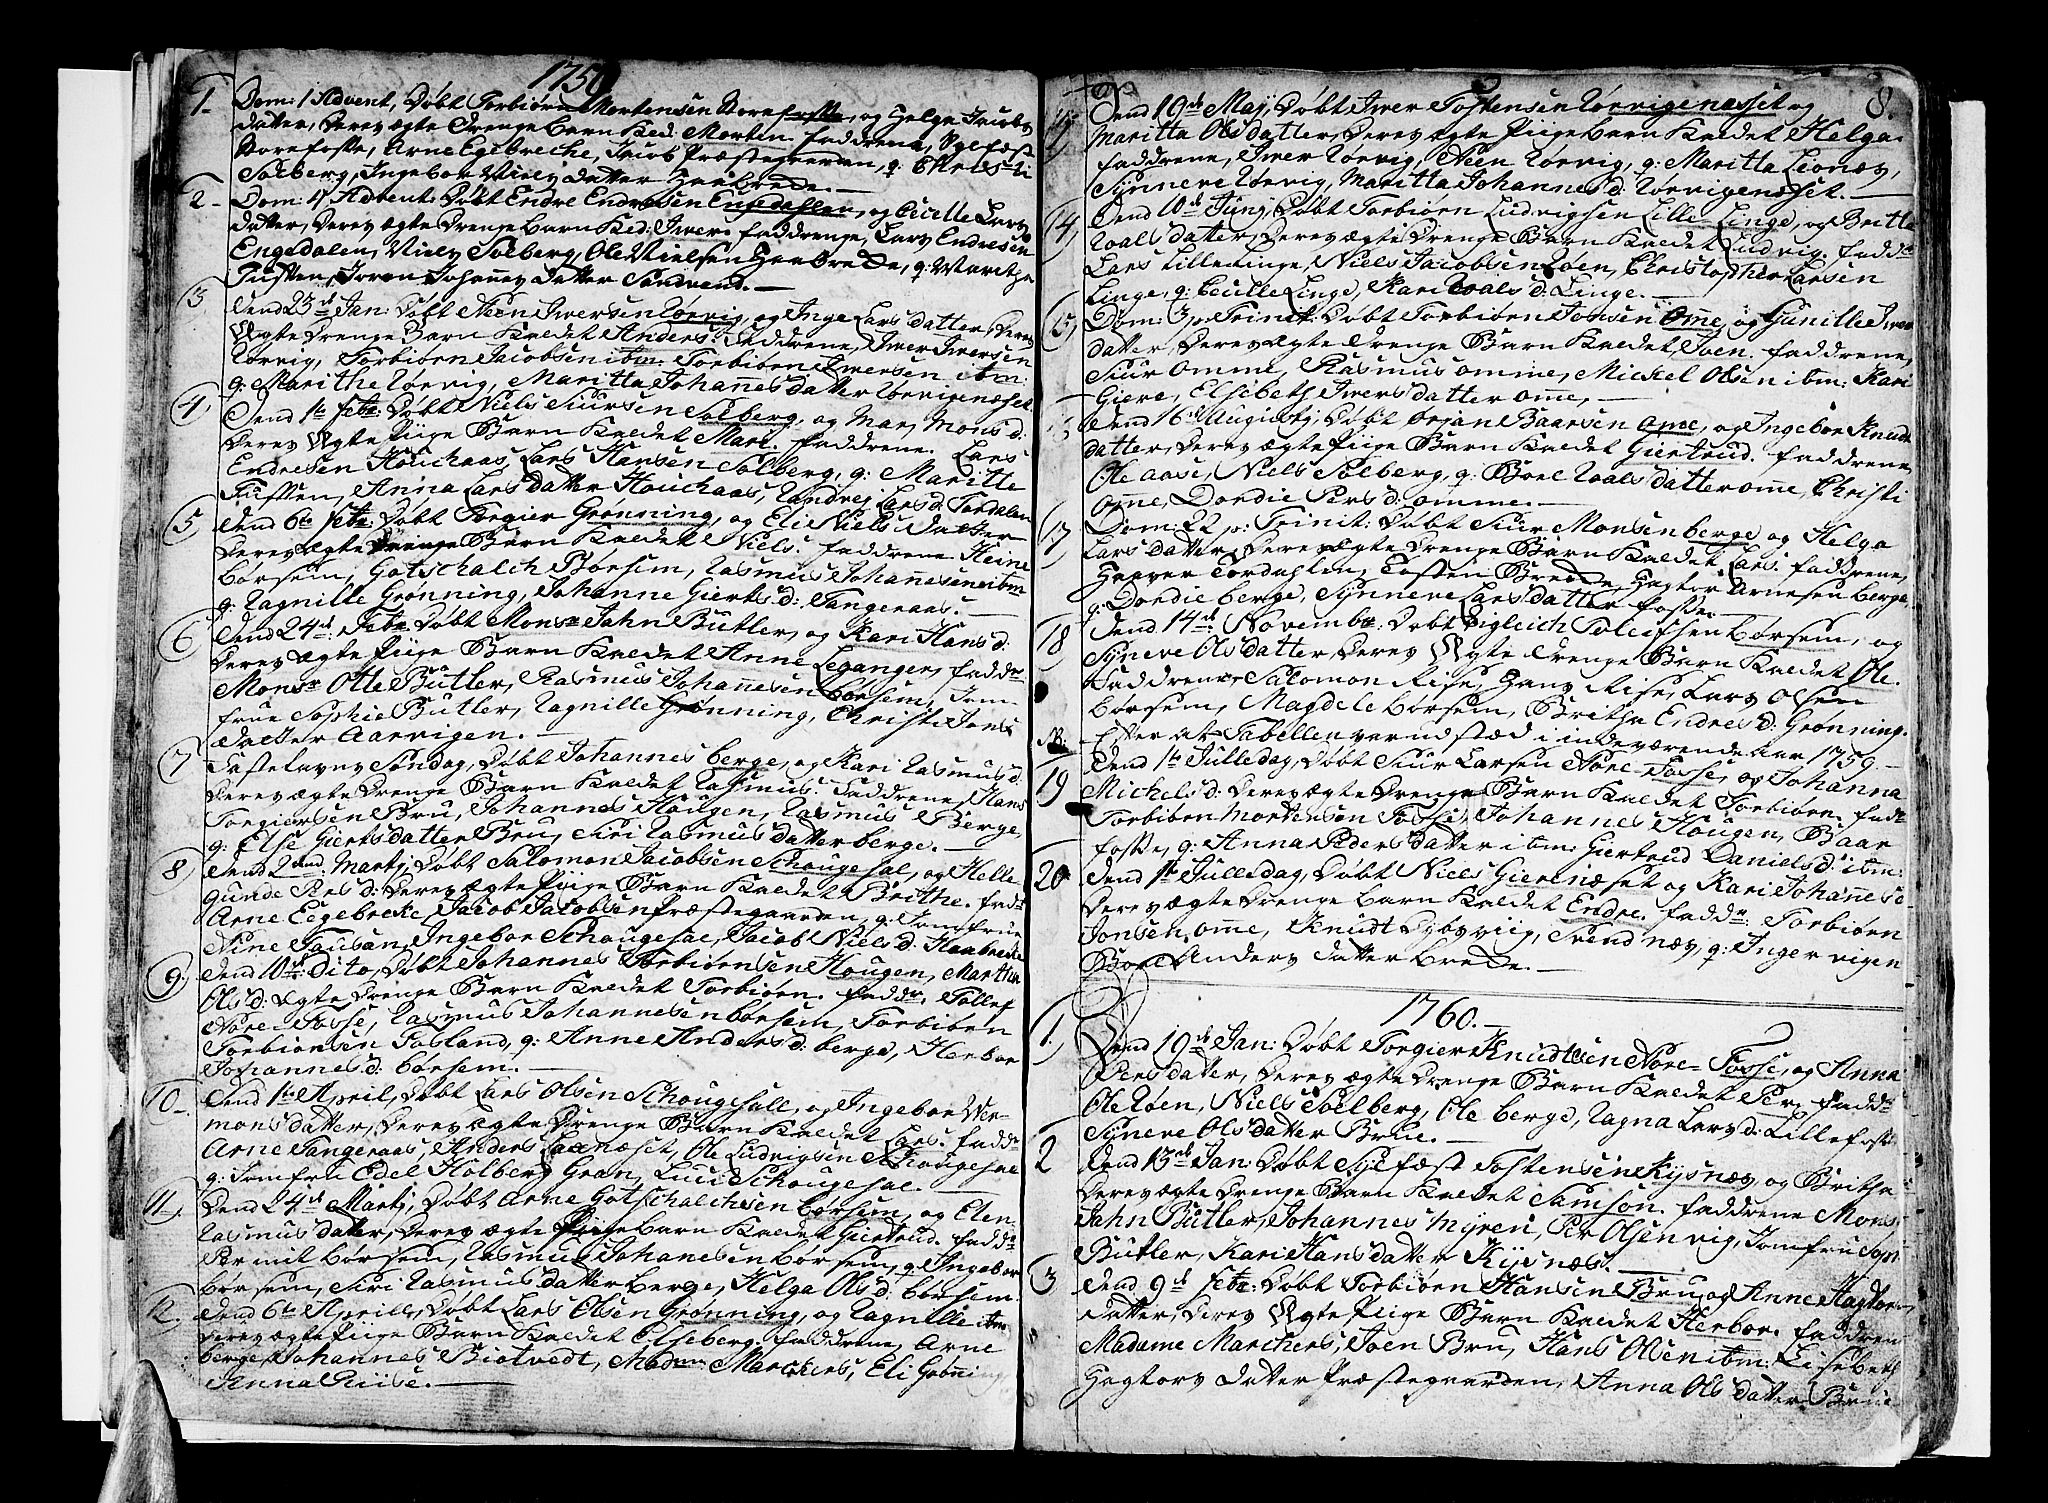 1759
1. Dom: 1 Advent, Døbt Torbiørn Mortensen Norefosse, og Helga Jacobs
datter, Deres ægte Drenge Barn Ked: Morten. faddrene, Syefæst
Norefosse, Arne Egebreche, Jacob Præstegaarden, q: Christi
Solberg, Ingebor Niels datter Haabrede.
2. Dom: 4 Advent. Døbt Endre Endresen Engedahlen, og Cecille Lars
datter, Deres ægte Drenge Barn Ked: Iwer. faddrene, Lars Endresen
Engedalen, Niels Solberg, Ole Nielsen Haabrede, q: Maritha
Tusten, Joren Johannes datter Sandvend.
3 Dend 23d Jan: Døbt Neen Iwersen Rørvig, og Inge Lars datter, Deres
Ægte Drenge Barn Kaldet Anders. Faddrene, Iwer Iwersen
Rørvig, Torbiørn Jacobsen ibm. Torbiørn Iwersen ibm:
q: Marithe Rørvig, Maritta Johannes datter Rørvigenæset
4 Dend 1te Febr: Døbt Niels Siursen Solberg, og Mari Mons d:
Deres Ægte Piige Barn Kaldet Mari. faddrene. Lars
Endresen Houchaas, Lars Hansen Solberg, q: Maritte
Tussen, Anna Lars datter Houchaas, Randvei Lars d: Tordalen
5 Dend 6te Febr: Døbt Torgier Grønning, og Eli Niels Datter
Deres ægte Drenge Barn Kaldet Niels. faddrene. Heine
Børsem, Gotschalch Børsem, Rasmus Johannesen ibm
q: Ragnille Grønning, Johanne Gierts d: Tangeraas.
6 Dend 24d Febr: Døbt Monsr Jahn Butler, og Kari Hans d:
Deres Ægte Piige Barn Kaldet Anne Leganger, faddr
Monsr Otte Butler, Rasmus Johannesen børsem, Jom-
frue Sophie Butler, Ragnille Grønning, Christi Jens
datter Aarvigen.
7 Fastelavns Søndag, Døbt Johannes berge, og Kari Rasmus d:
Deres ægte Drenge Barn Kaldet Rasmus. Faddrene, Hans
Torgiersen Bru, Johannes Hougen, Rasmus Berge,
q: Else Gierts datter Bru, Siri Rasmus datter berge.
8 Dend 2den Martj, Døbt Salomon Jacobsen Schougesal, og Helle
gunde Ols d: Deres ægte Piige Barn Kaldet Brithe. fadr
Arne Eegebreke, Jacob Jacobsen Præstegaarden, q: Jomfrue
Nine Tausan, Ingebor Schougesal, Jacob Niels d: Haabrede
9 Dend 10d Dito, Døbt Johannes Torbiørnsen Hougen, Martha
Ols d: Ægte Drenge Barn Kaldet Torbiørn. faddr, Tollef
Nore-Fosse, Rasmus Johannesen børsem, Torbiørn
Torbiønsen Fosland, q: Anne Anders d: berge, Herbor
Johannes d: børsem.
10 Dend 1te April, Døbt Lars Olsen Schougesall, og Ingebor Wer-
mons datter, Deres ægte Drenge Barn Kaldet Lars. faddr
Arne Tangeraas, Anders næset, Ole Ludvigsen Schougesal
q: Jomfru Edel Holberg Gran, Luci Schougesal.
11 Dend 24d Martj, Døbt Arne Gotschalchsen børsem, og Elen
Rasmus datter, Deres ægte Piige Barn Kaldet Giertrud. faddr
Per mit børsem, Rasmus Johanesen børsem, q: Ingebor
børsem, Siri Rasmus datter berge, Helga Ols d: børsem.
12. Dend 6te Aprill, Døbt Lars Olsen Grønning, og Ragnille ibm
Deres ægte Piige Barn Kaldet Elseberg. faddrene, Arne
berge, Johannes Biotvedt, Madm Marchers, Eli Grønning
Anna Riise.
8.
Dend 19d Maij, Døbt Iwer Tostensen Rørvigenæsset og
Maritta Ols datter, Deres ægte Piige Barn Kaldet Helga.
faddrene, Iwer Rørvig, Neen Rørvig, q: Maritta Lionæs,
Synneve Rørvig, Maritta Johannes d: Rørvigenæset.
14 Dend 10d Junj, Døbt Torbiørn Ludvigsen Lille Linge, og Britte
Roals datter, Deres ægte Drenge Barn Kaldet Ludvig. faddr
Lars Lillelinge, Niels Jacobsen Røen, Christopher Larsen
Linge, q: Cecille Linge, Kari Roals d: Linge.
15 Dom: 3 p: Trinit: Døbt Torbiørn Jonsen Omme, og Gunille Iwers
datter, Deres ægte Drenge Barn Kaldet Joen. faddrene,
Siur Omme, Rasmus Omme, Mickel Olsen ibm: Kari
Giere, Elsebeth Iwers datter Omme,
Dend 16d Augusty, Døbt Ørjan Baarsen Omme, og Ingebor Knuds
datter, Deres ægte Piige Barn Kaldet Giertrud. faddrene,
Ole aase, Niels Solberg, q: Boel Roals datter omme, Christi
omme, Dordie Pers d: omme.
17 Dom: 22 p: Trinit: Døbt Siur Monsen berge og Helga
Lars datter, Deres ægte Drenge Barn Kaldet Lars. faddrene,
Haaver Tordahlen, Tosten Brede, Hagtor Arnesen berge,
q: Dordie berge, Synneve Lars datter fosse.
18 Dend 14d Novembr: Døbt Digleich Toleifsen børsem, og
Syneve Ols datter, Deres Ægte Drenge Barn Kaldet Ole.
Faddrene, Salomon Rise, Hans Rise, Lars Olsen
børsem, Magdele børsem, Britha Endres d: Grønning.
NB: Efter at Tabellen var udstæd i indeværende aar 1759.
19 Dend 1te Julledag, Døbt Siur Larsen Nore-Fosse, og Johanna
Michels d: Deres ægte Drenge Barn Kaldet Torbiørn. fadr
Torbiørn Mortensen Fosse, Johannes Hougen, Baar
fosse, q: Anna Peders datter ibm: Giertrud Daniels d: ibm:
20 Dend 1te Julledag, Døbt Niels Gierenæset og Kari Johannes d
Deres ægte Drenge barn Kaldet Endre. faddr: Torbiørn
Jonsen omme, Knudt Dybvig, Svend næs, q: Inger vigen
Boel Anders datter brede.
1760.
1. Dend 19d Jan: Døbt Torgier Knudtsen Nore-Fosse, og Anna
Pers datter, Deres ægte Drenge Barn Kaldet Per, faddr
Ole Røen, Niels Soelberg, Ole berge, Ragna Lars d: Lillefosse
Syneve Ols datter Brue.
2 Dend 13d Jan: Døbt Syefæst Tostensen Kysnæs, og Britha
Deres ægte Drenge Barn Kaldet Samson. faddrene Mons:
Jahn Butler, Johannes Myren, Per Olsen vig, Jomfru Sopi
Butler, Kari Hans datter Kysnæs.
3 Dend 9d Febr: Døbt Torbiørn Hansen Bru, og Anne Hagtors
datter, Deres Ægte Piige Barn Kaldet Herbor. faddren
Madame Marchers, Joen Bru, Hans Olsen ibm: Lisebeth
Hagtors datter Præstegaarden, Anna Ols datter Brue